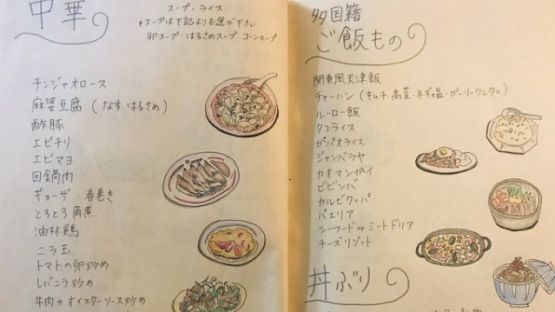 中華
スープ・ライス
*スープは下記よりお選び下さい
卵スープ・はるさめスープ・コーンスープ
チンジャオロース
麻婆豆腐 (なす・はるさめ)
酢豚
エビチリ
エビマヨ
回鍋肉
ギョーザ 春巻き
とろとろ角煮
油林鶏
ニラ玉
トマトの卵炒め
レバニラ炒め
牛肉のオイスターソース炒め
多国籍
ご飯もの
関東風天津飯
チャーハン (キムチ・高菜・ネギ塩・ガーリックレタス)
ルーロー飯
タコライス
ガパオライス
ジャンバラヤ
カオマンガイ
ビビンバ
カルビクッパ
パエリア
シーフード or ミートドリア
チーズリゾット
丼ぶり